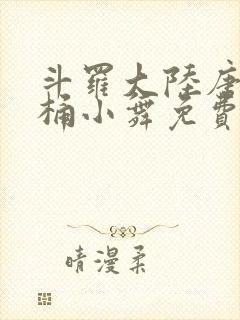 斗羅大陸唐
桶小舞免費
晴漫柔